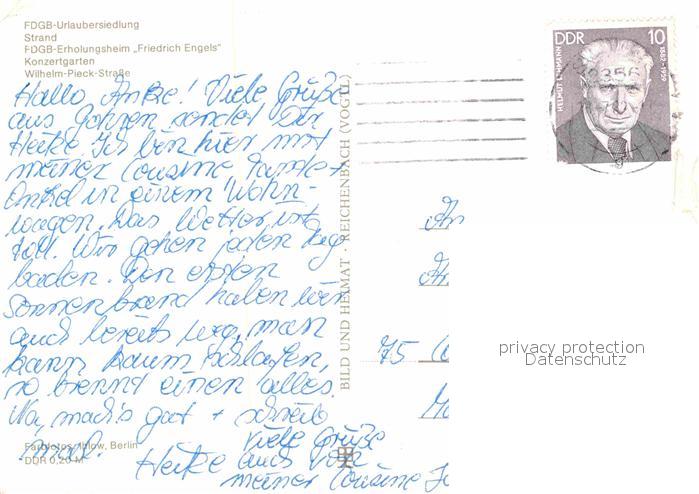 FDGB-Urlaubersiedlung
Strand
FDGB-Erholungsheim „Friedrich Engels"
Konzertgarten
Wilhelm-Pieck-Straße
Hallo Antke! Viele Grüße
aus Göhren sendet Dir
Heike Ich bin hier mit
meiner Cousine Tante +
Onkel in einem Wohn-
wagen. Das Wetter ist
toll. Wir gehen jeden Tag
baden. Den ersten
Sonnenbrand haben wir
auch bereits weg, man
kann kaum schlafen,
so brennt einen alles.
Na, mach's gut + schreib
mal. Viele Grüße
Heike auch von
meiner Cousine
Farbfotos: Ihlow, Berlin
DDR 0,20 M
BILD UND HEIMAT · REICHENBACH (VOGTL)
DDR 10
HELMUT LEHMANN
1882-1959
An
75
privacy protection
Datenschutz